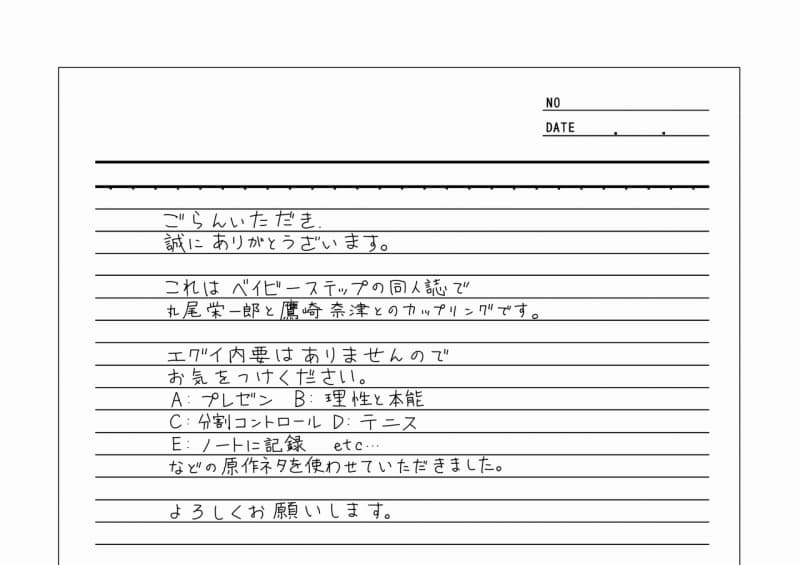 NO
DATE . .
ごらんいただき.
誠にありがとうざいます。
これは ベイビーステップの同人誌で
丸尾栄一郎と鷹崎奈津とのカップリングです。
エグイ内要はありませんので
お気をつけください。
A: プレゼン B: 理性と本能
C: 分割コントロール D: テニス
E: ノートに記録 etc…
などの原作ネタを使わせていただきました。
よろしくお願いします。